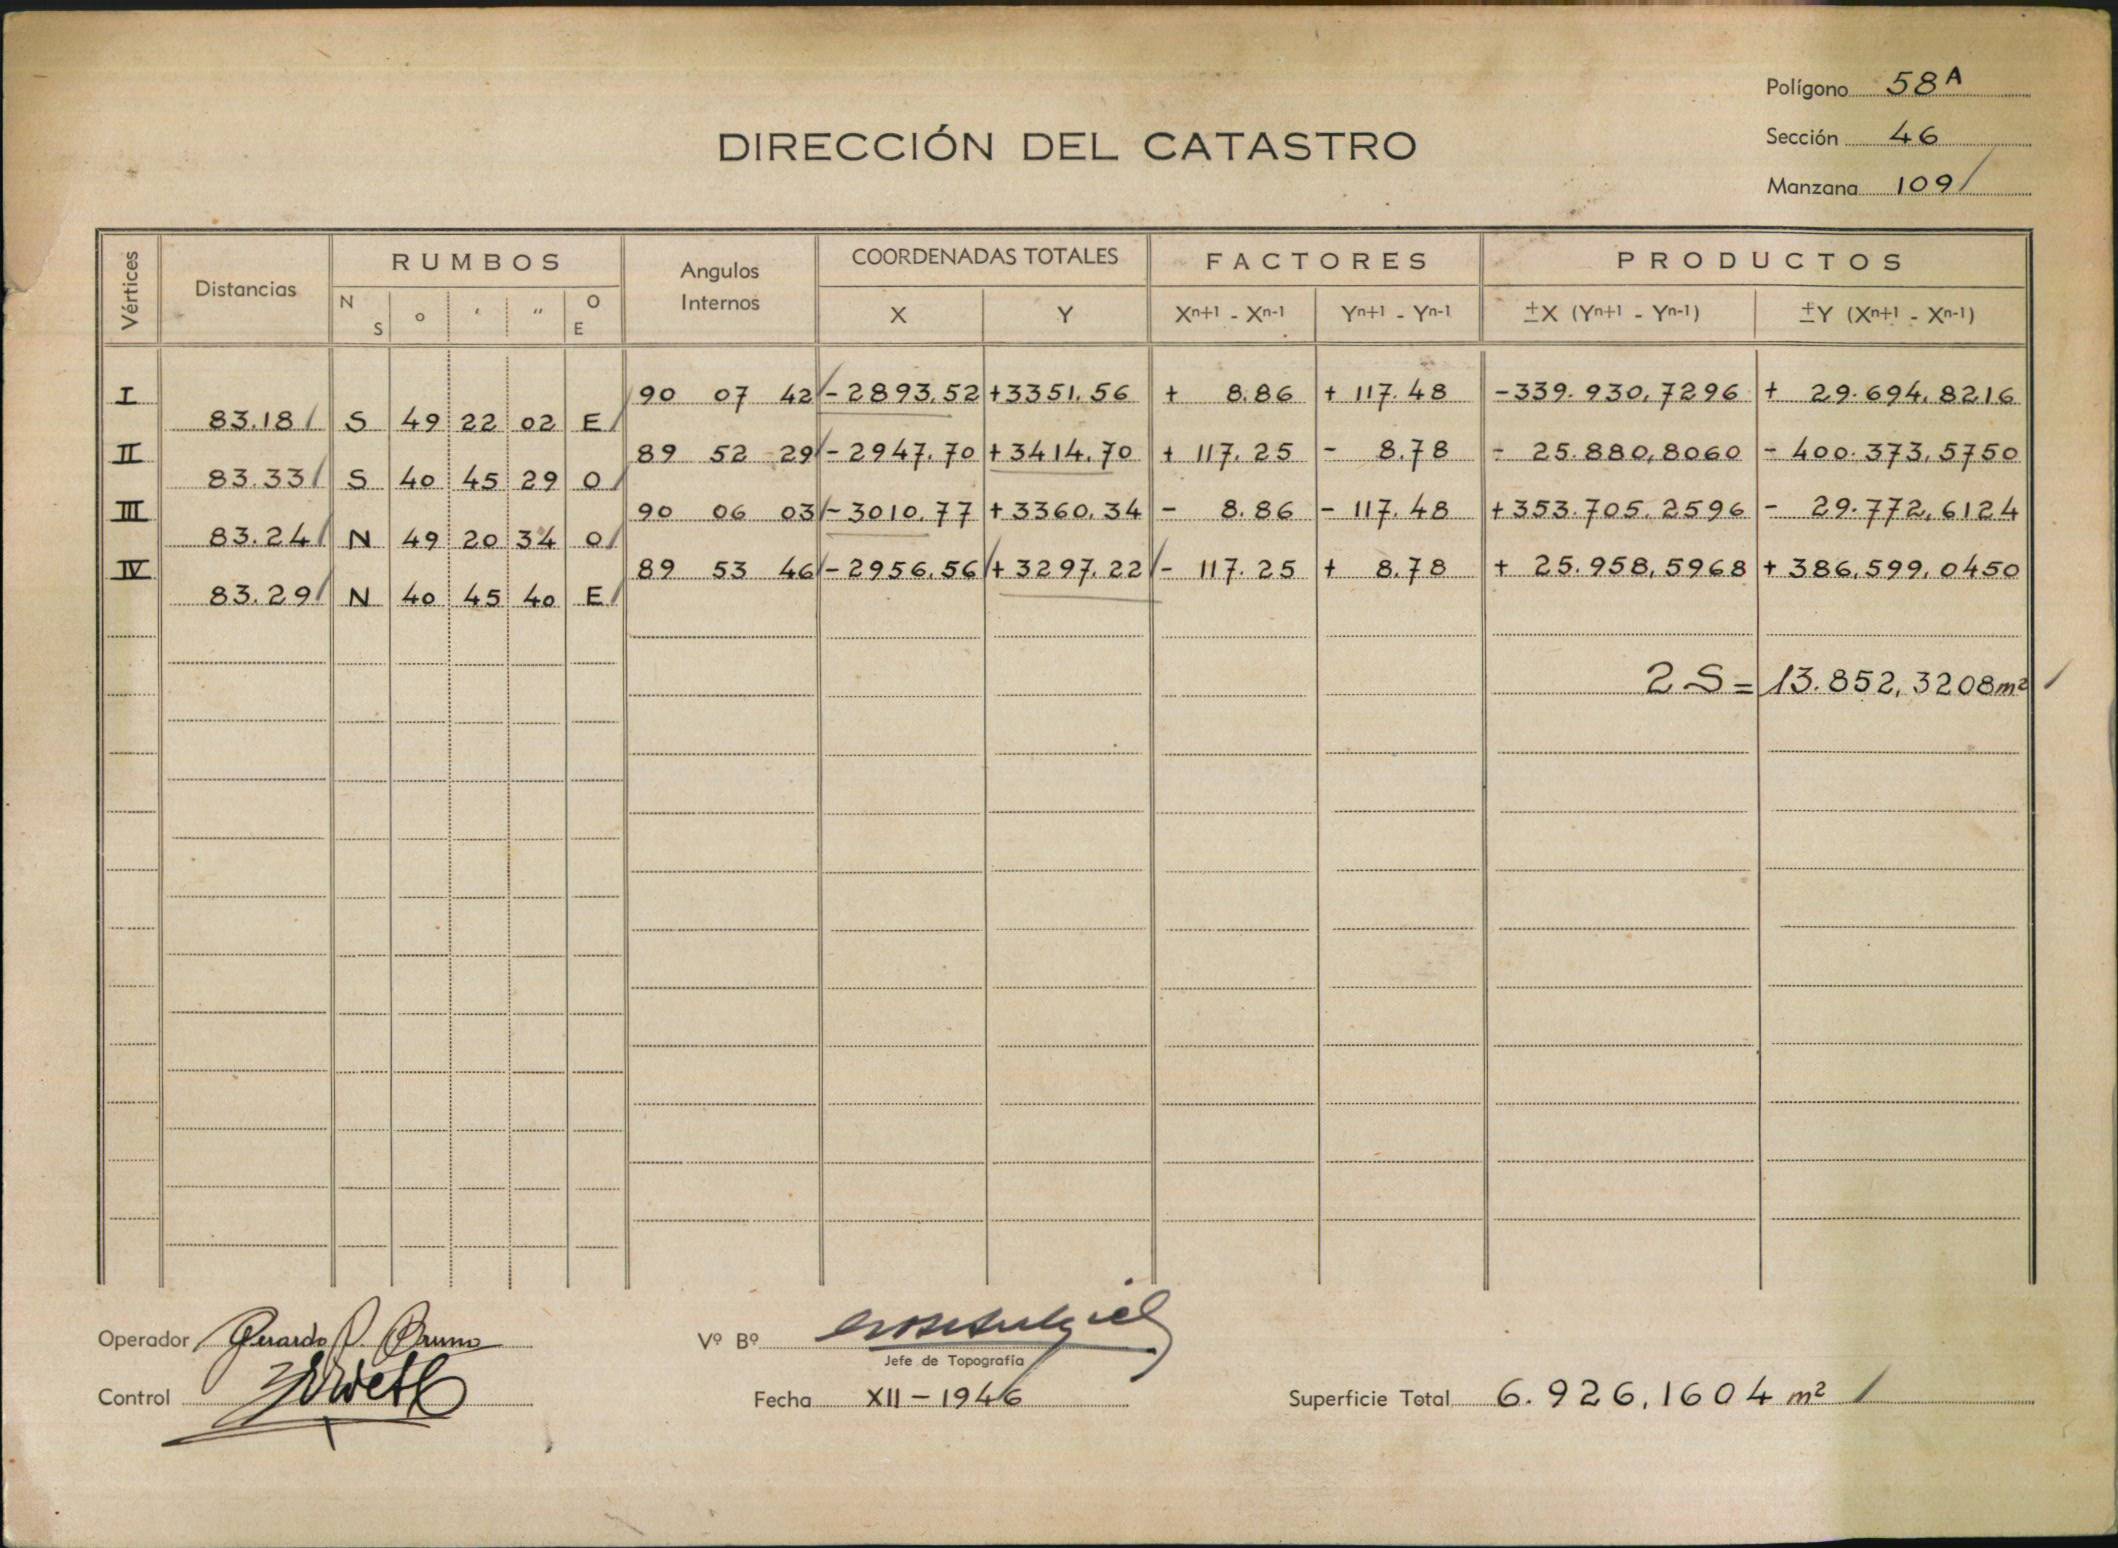 Polígono 58 A
DIRECCIÓN DEL CATASTRO
Sección 46
Manzana 109
Vértices Distancias RUMBOS Angulos Internos COORDENADAS TOTALES FACTORES PRODUCTOS
N S ° ' " O E X Y Xn+1 - Xn-1 Yn+1 - Yn-1 ±X (Yn+1 - Yn-1) ±Y (Xn+1 - Xn-1)
I 90 07 42 - 2893.52 +3351.56 + 8.86 + 117.48 -339.930,7296 + 29.694,8216
83.18 S 49 22 02 E
II 89 52 29 - 2947.70 +3414.70 + 117.25 - 8.78 - 25.880,8060 - 400.373,5750
83.33 S 40 45 29 O
III 90 06 03 - 3010.77 +3360.34 - 8.86 - 117.48 +353.705.2596 - 29.772,6124
83.24 N 49 20 34 O
IV 89 53 46 - 2956.56 + 3297.22 - 117.25 + 8.78 + 25.958,5968 + 386.599,0450
83.29 N 40 45 40 E
2 S = 13.852,3208 m²
Operador Gerardo P. Bruno Vº Bº
Jefe de Topografía
Control Fecha XII - 1946 Superficie Total 6.926,1604 m²